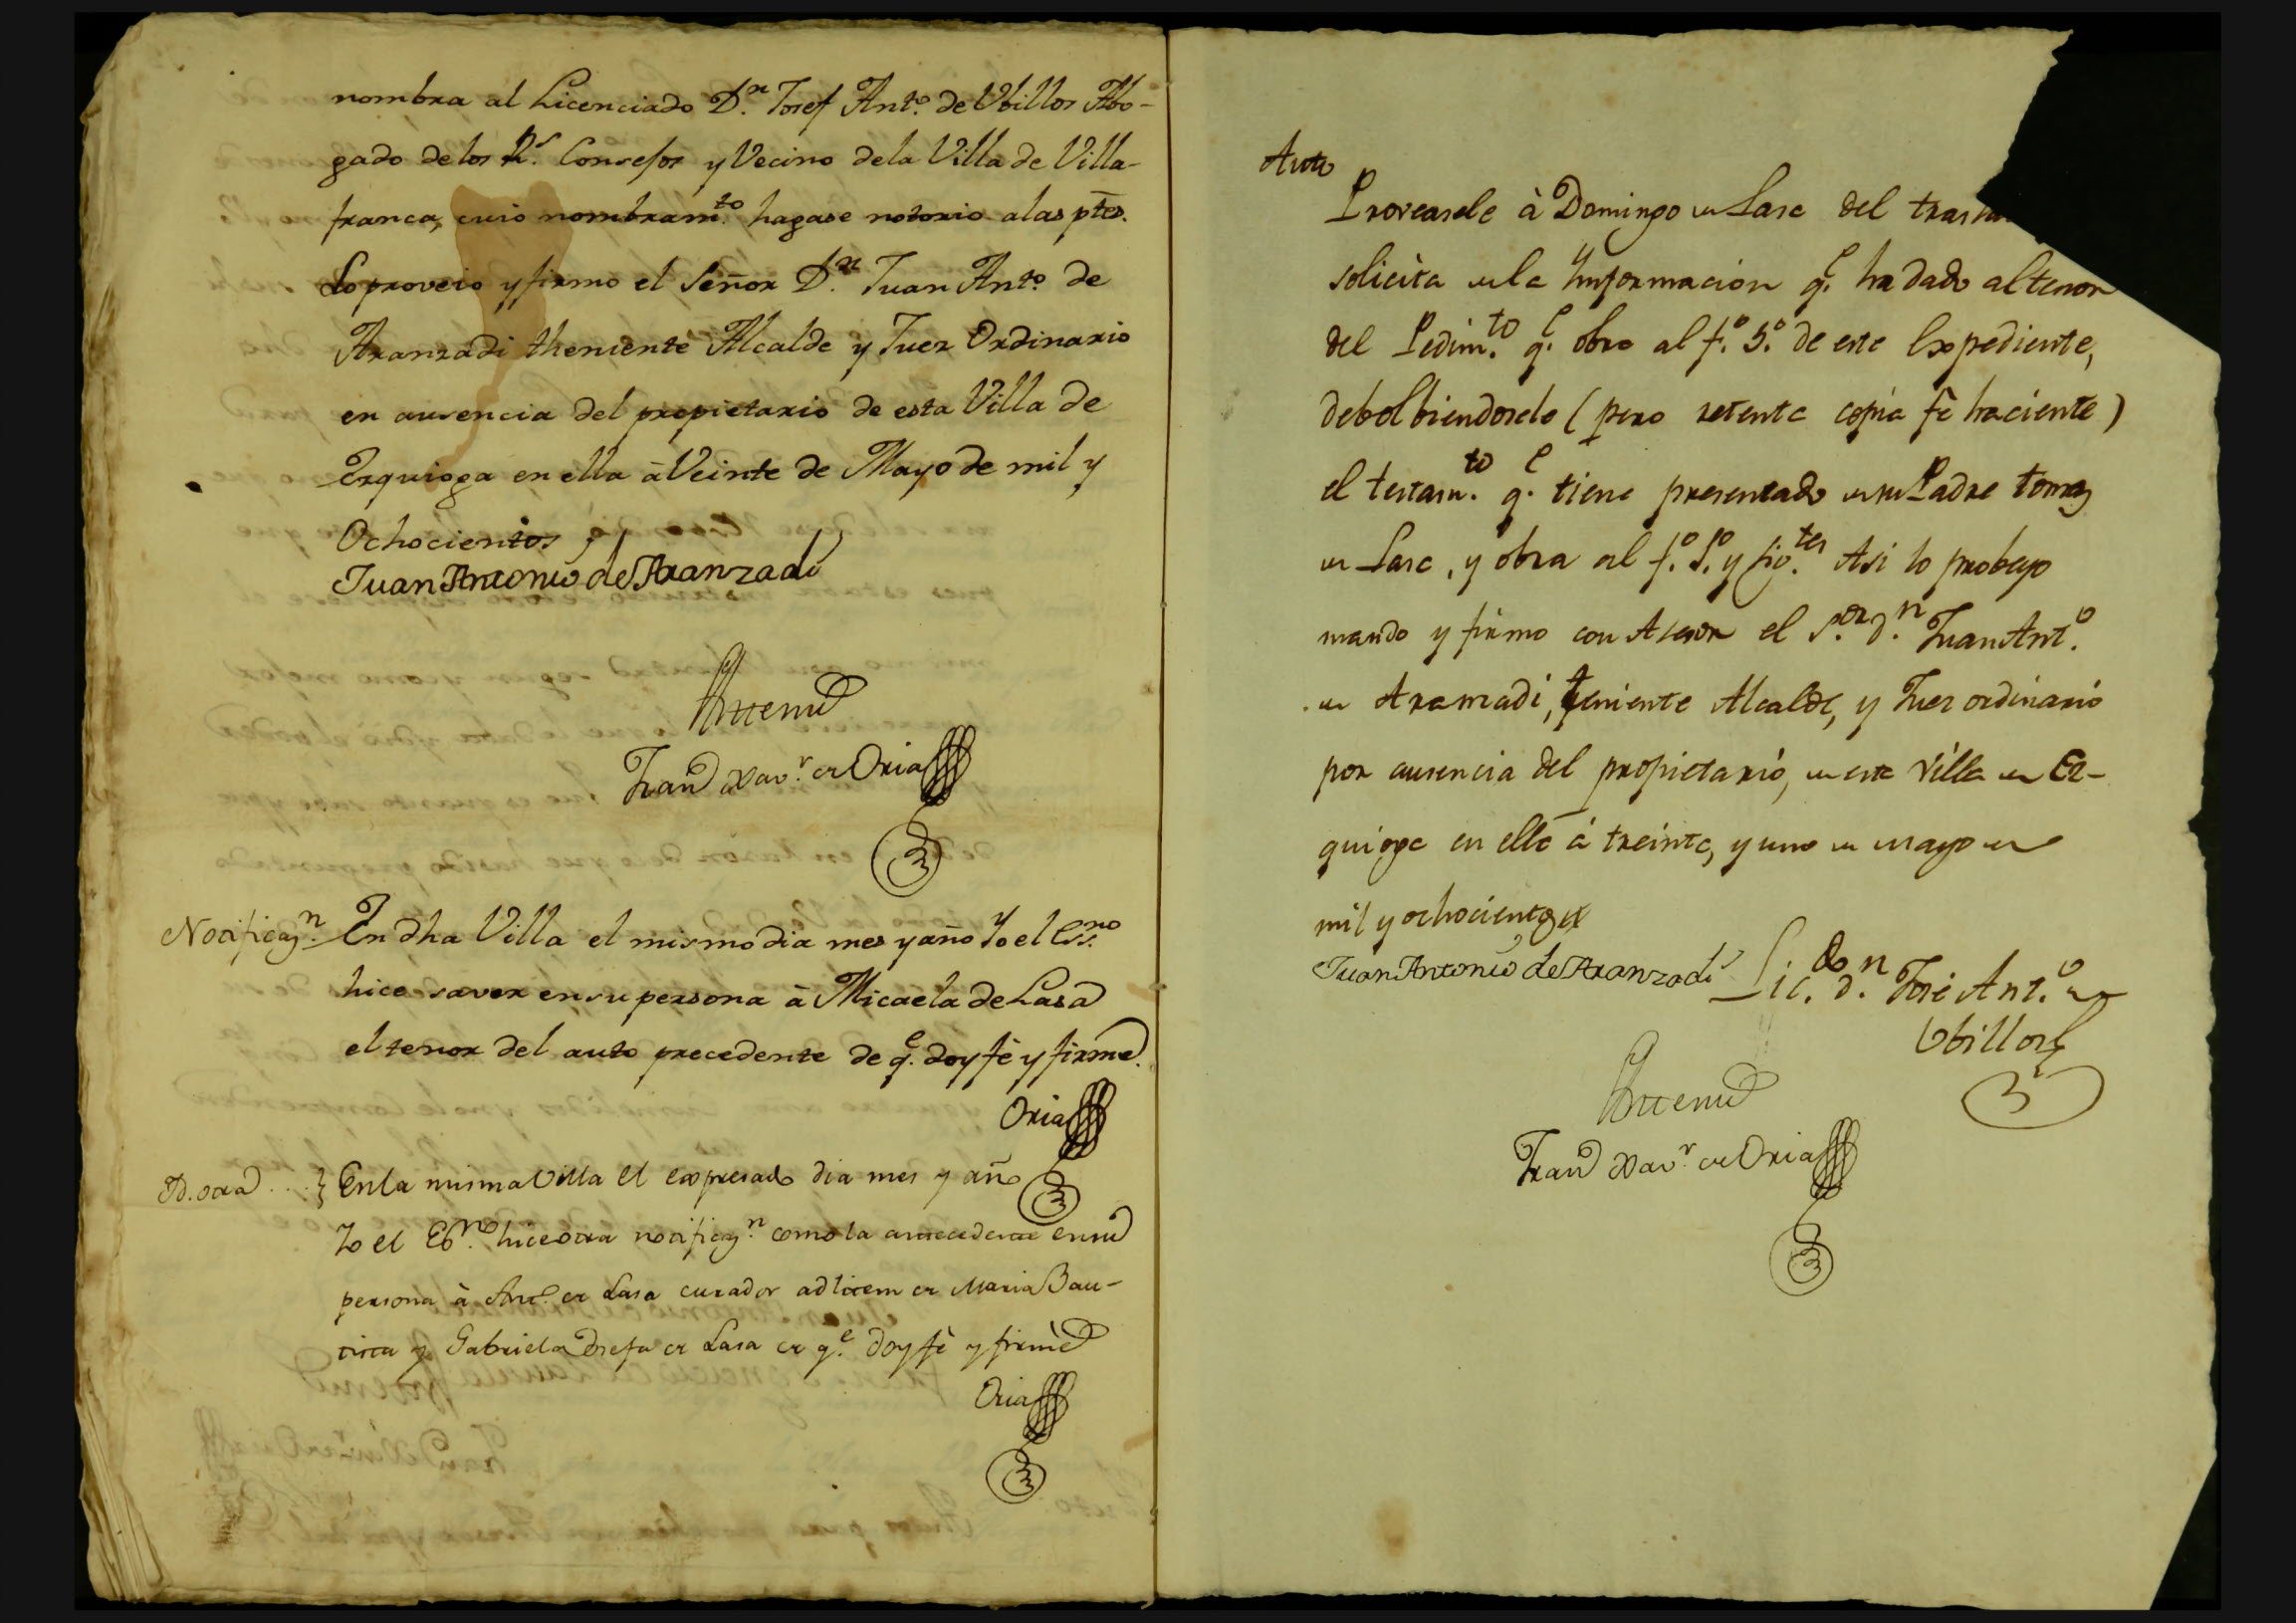 nombra al Licenciado D.n Josef Ant.o de Vbillos Abo-
gado de los R.s Consejos y Vecino dela Villa de Villa-
franca, cuio nombram.to hagase notorio alas ptes.
Lo proveio y firmo el Señor D.n Juan Ant.o de
Aranzadi theniente Alcalde y Juez Ordinario
en ausencia del propietario de esta Villa de
Ezquioga en ella à Veinte de Mayo de mil y
Ochocientos
Juan Antonio de Aranzadi
Antemi
Fran.co Xav.r de Oria
Notificaz.n En dha Villa el mismo dia mes y año Yo el Ess.no
hice saver en su persona à Micaela de Lasa
el tenor del auto precedente de q.e doy fè y firme.
Oria
otra....} En la misma Villa el expresado dia mes y año
Yo el Es.no hice otra notificaz.n como la antecedente en su
persona à Ant.o de Lasa curador adlitem de Maria Bau-
tista y Gabriela Josefa de Lasa de q.e doy fè y firmè
Oria
Auto
Proveasele à Domingo de Lasa del
solicita de la Ynformacion q.e ha dado al tenor
del Pedim.to q.e obra al f.o 5.o de este Expediente,
debolbiendosele (pero retenta copia fe haciente)
el testam.to q.e tiene presentado de su Padre tomas
de Lasa, y obra al f.o 1.o y sig.tes Asi lo probeyo
mando y firmo con Asesor el S.or d.n Juan Ant.o
de Aranzadi, teniente Alcalde, y Juez ordinario
por ausencia del propietario, de esta Villa de Ez-
quioga en ella á treinta, y uno de mayo de
mil y ochocientos
Juan Antonio de Aranzadi
Lic.do d.n José Ant.o de
Vbillos
Antemi
Fran.co Xav.r de Oria